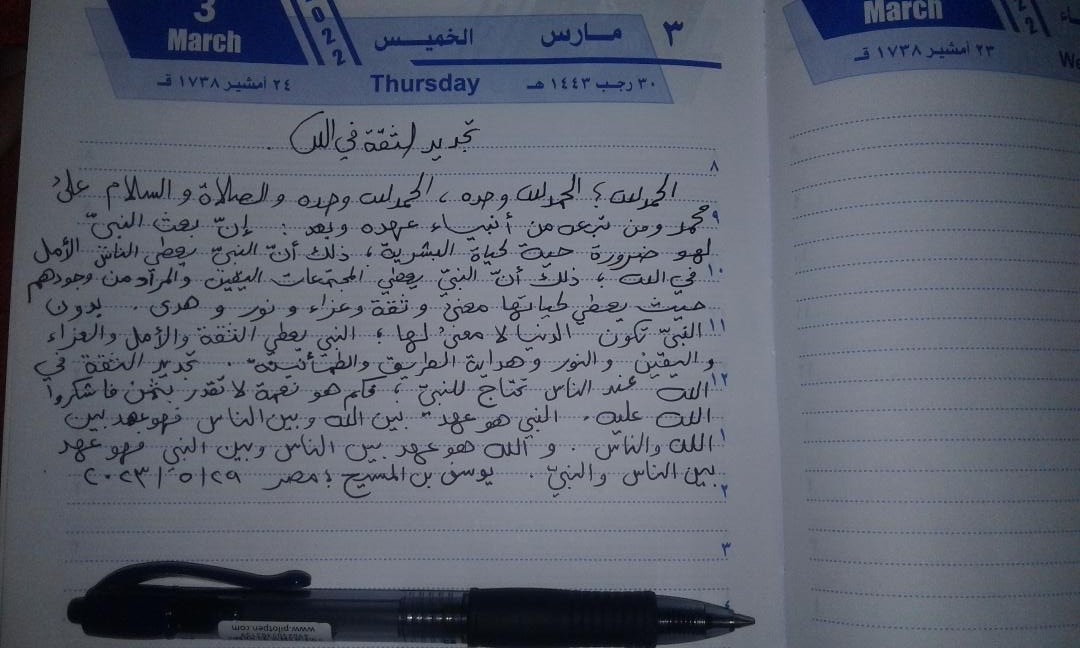 3
March
2022
الخميس
مارس
٣
٢٤ أمشير ١٧٣٨ قـ
Thursday
٣٠ رجب ١٤٤٣ هـ
March
22
٢٣ أمشير ١٧٣٨ قـ
We
تجديد الثقة في الله .
٨
الحمد لله ؛ الحمد لله وحده ، الحمد لله وحده و الصلاة و السلام على
٩
محمد ومن تبعه من أنبياء عهده وبعد : إنّ بعث النبيّ
لهو ضرورة حية لحياة البشرية ، ذلك أنّ النبيّ يعطي الناس الأمل
١٠
في الله ؛ ذلك أنّ النبيّ يعطي المجتمعات اليقين والمراد من وجودهم
حيث يعطي لحياتها معنى و ثقة وعزاء و نور و هدى . بدون
١١
النبيّ تكون الدنيا لا معنى لها ؛ النبي يعطي الثقة والأمل والعزاء
و اليقين و النور و هداية الطريق والطمأنينة . تجديد الثقة في
١٢
الله عند الناس تحتاج للنبيّ ؛ فكم هو نعمة لا تقدر بثمن فاشكروا
الله عليه . النبي هو عهد بين الله وبين الناس فهو عهد بين
١
الله والناس . و الله هو عهد بين الناس وبين النبي فهو عهد
بين الناس والنبيّ . يوسف بن المسيح ؛ مصر ٢٠٢٣/٥/٢٩
٢
٣
www.pilotpen.com